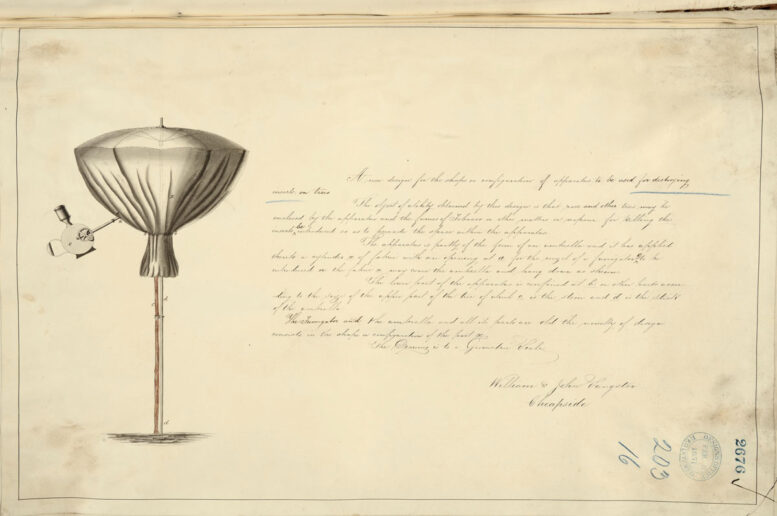 A new design for the shape or configuration of apparatus to be used for destroying
insects on trees
The object of utility obtained by this design is that rose and other trees may be
enclosed by the apparatus and the fumes of Tobacco or other matter or vapour for killing the
insects be introduced so as to pervade the space within the apparatus
The apparatus is partly of the form of an umbrella and it has applied
thereto a cylinder a of fabric with an opening at for the nozzle of a fumigator to be
introduced the fabric a may cover the umbrella and hang down as shewn
The lower part of the apparatus is confined at b or other parts accor
ding to the size of the upper part of the tree of which c is the stem and d is the stick
of the umbrella
The Fumigator and the umbrella and all its parts are old the novelty of design
consists in the shape or configuration of the part
The Drawing is to a Geometric Scale
William & John Sangster
Cheapside
16
203
2676